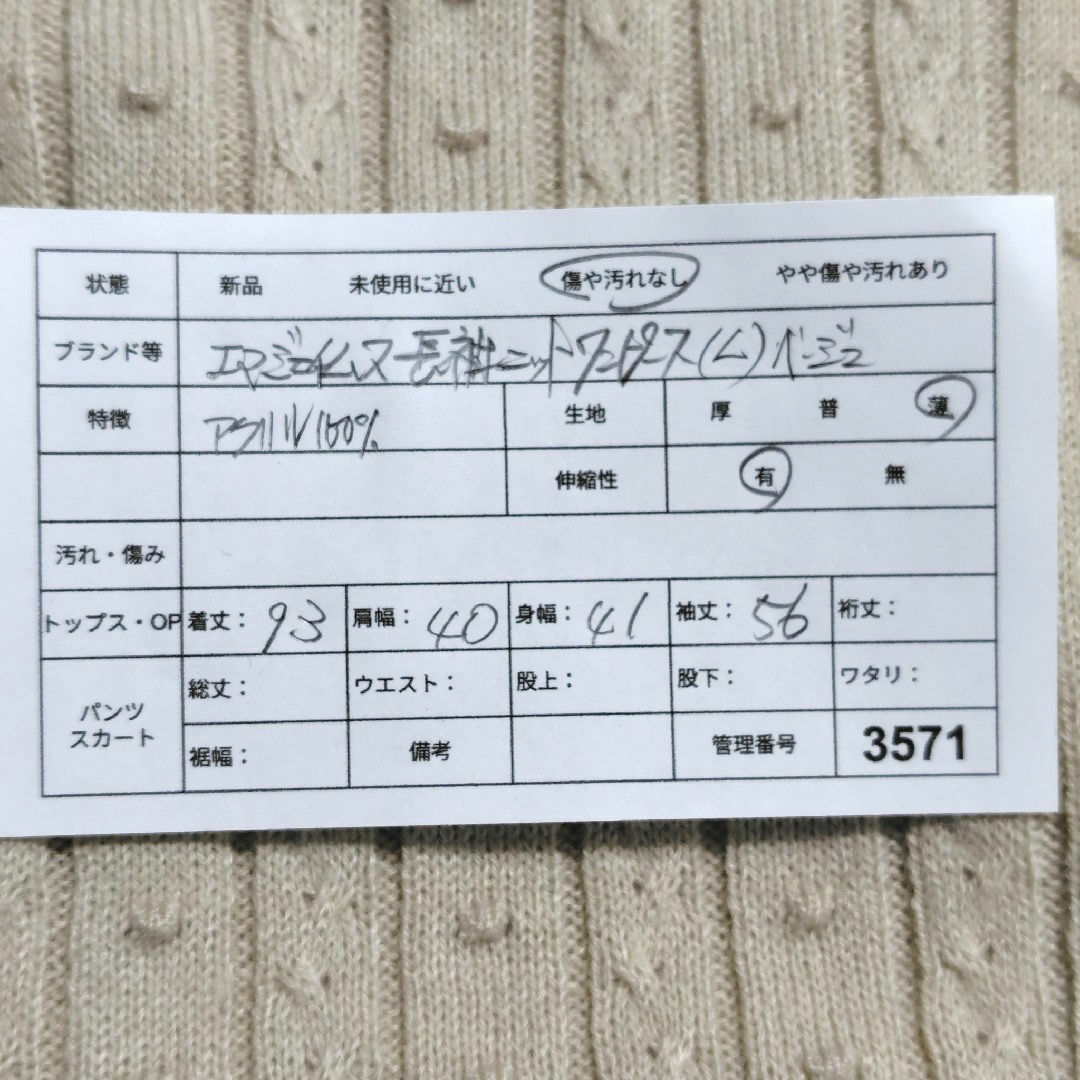 状態 新品 未使用に近い 傷や汚れなし やや傷や汚れあり
ブランド等 エマジェイムス 長袖ニットワンピース(L) ベージュ
特徴 アクリル100% 生地 厚 普 薄
伸縮性 有 無
汚れ・傷み
トップス・OP 着丈: 93 肩幅: 40 身幅: 41 袖丈: 56 裄丈:
パンツ スカート 総丈: ウエスト: 股上: 股下: ワタリ:
裾幅: 備考 管理番号 3571